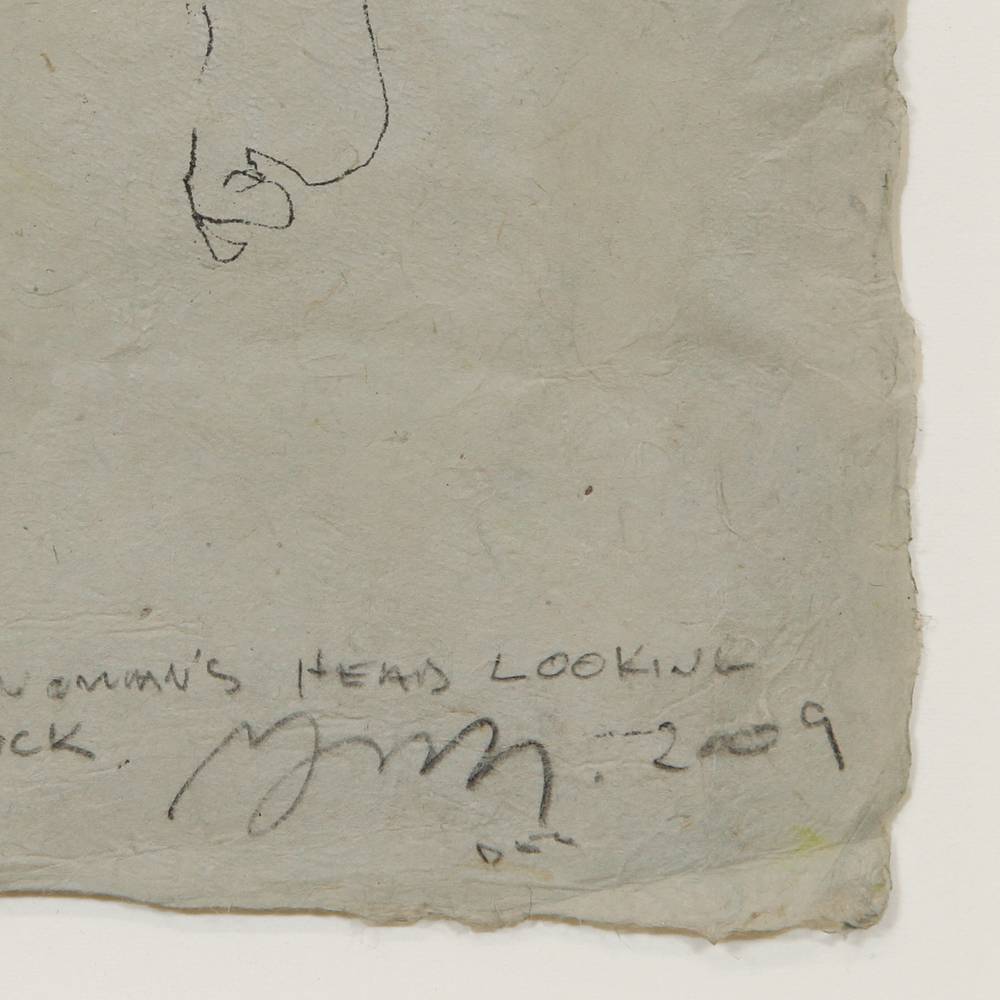 WOMAN'S HEAD LOOKING
OCK
2009
DEC